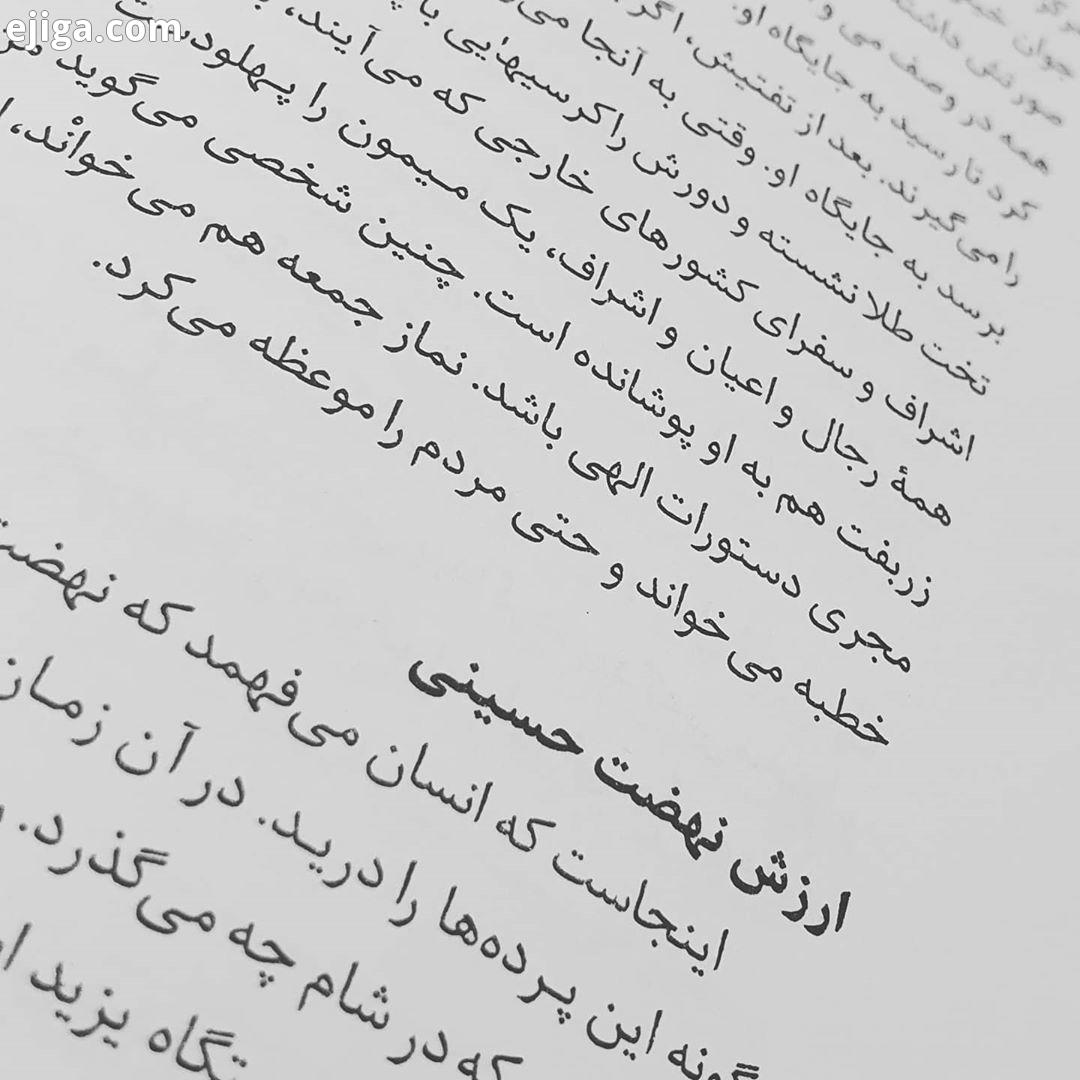 ejiga.com
جوان
صورتش
همه در وصف می
کرد تا رسید به جایگاه او.
را می گیرند. بعد از تفتیش، اگر
برسد به جایگاه او. وقتی به آنجا می
تخت طلا نشسته و دورش را کرسیهایی با
اشراف و سفرای کشورهای خارجی که می آیند،
همهٔ رجال و اعیان و اشراف، یک میمون را پهلو
زربفت هم به او پوشانده است. چنین شخصی می گوید
مجری دستورات الهی باشد. نماز جمعه هم می خوانْد،
خطبه می خواند و حتی مردم را موعظه می کرد.
ارزش نهضت حسینی
اینجاست که انسان می فهمد که نهضت
گونه این پرده ها را درید. در آن زمان
که در شام چه می گذرد.
تگاه یزید